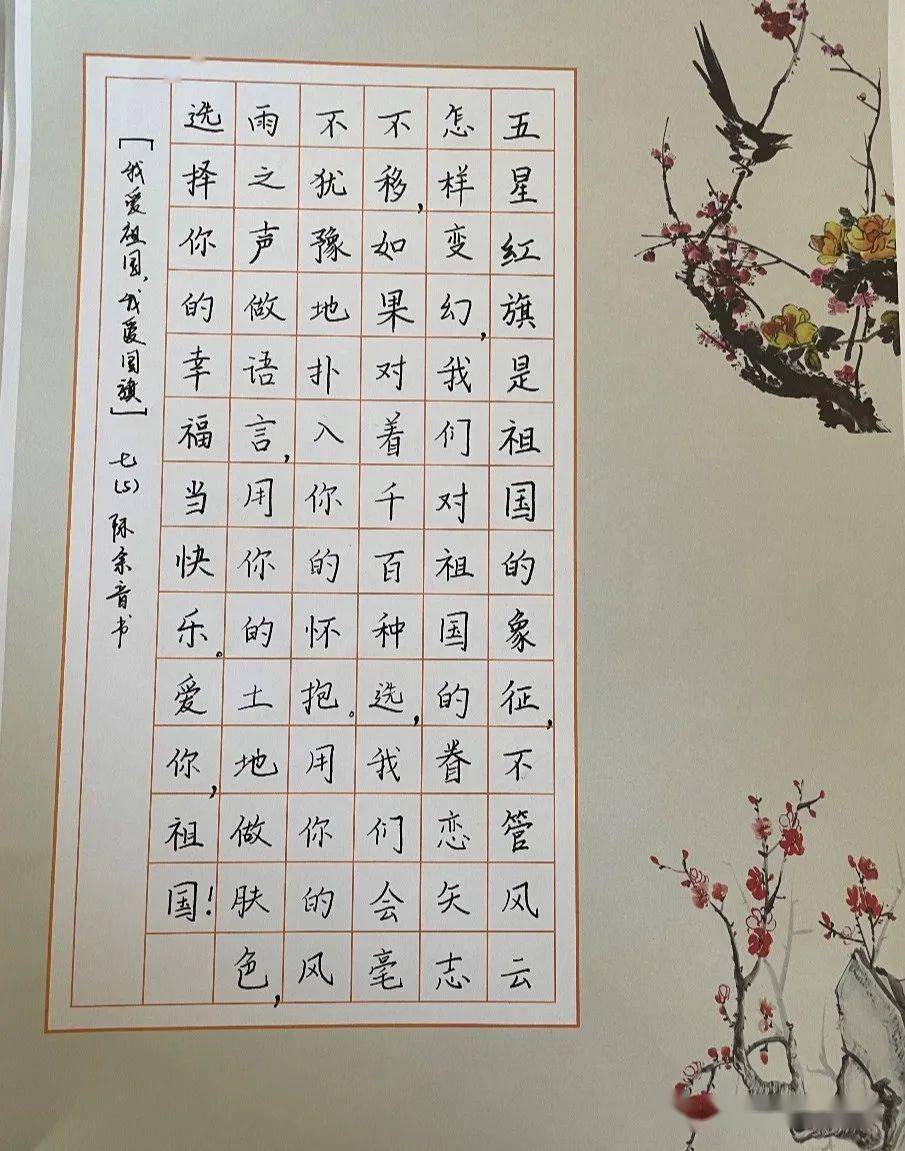 五星红旗是祖国的象征,不管风云
怎样变幻,我们对祖国的眷恋矢志
不移,如果对着千百种选,我们会毫
不犹豫地扑入你的怀抱。用你的风
雨之声做语言,用你的土地做肤色,
选择你的幸福当快乐。爱你,祖国!
[我爱祖国,我爱国旗] 七(5) 陈余音书